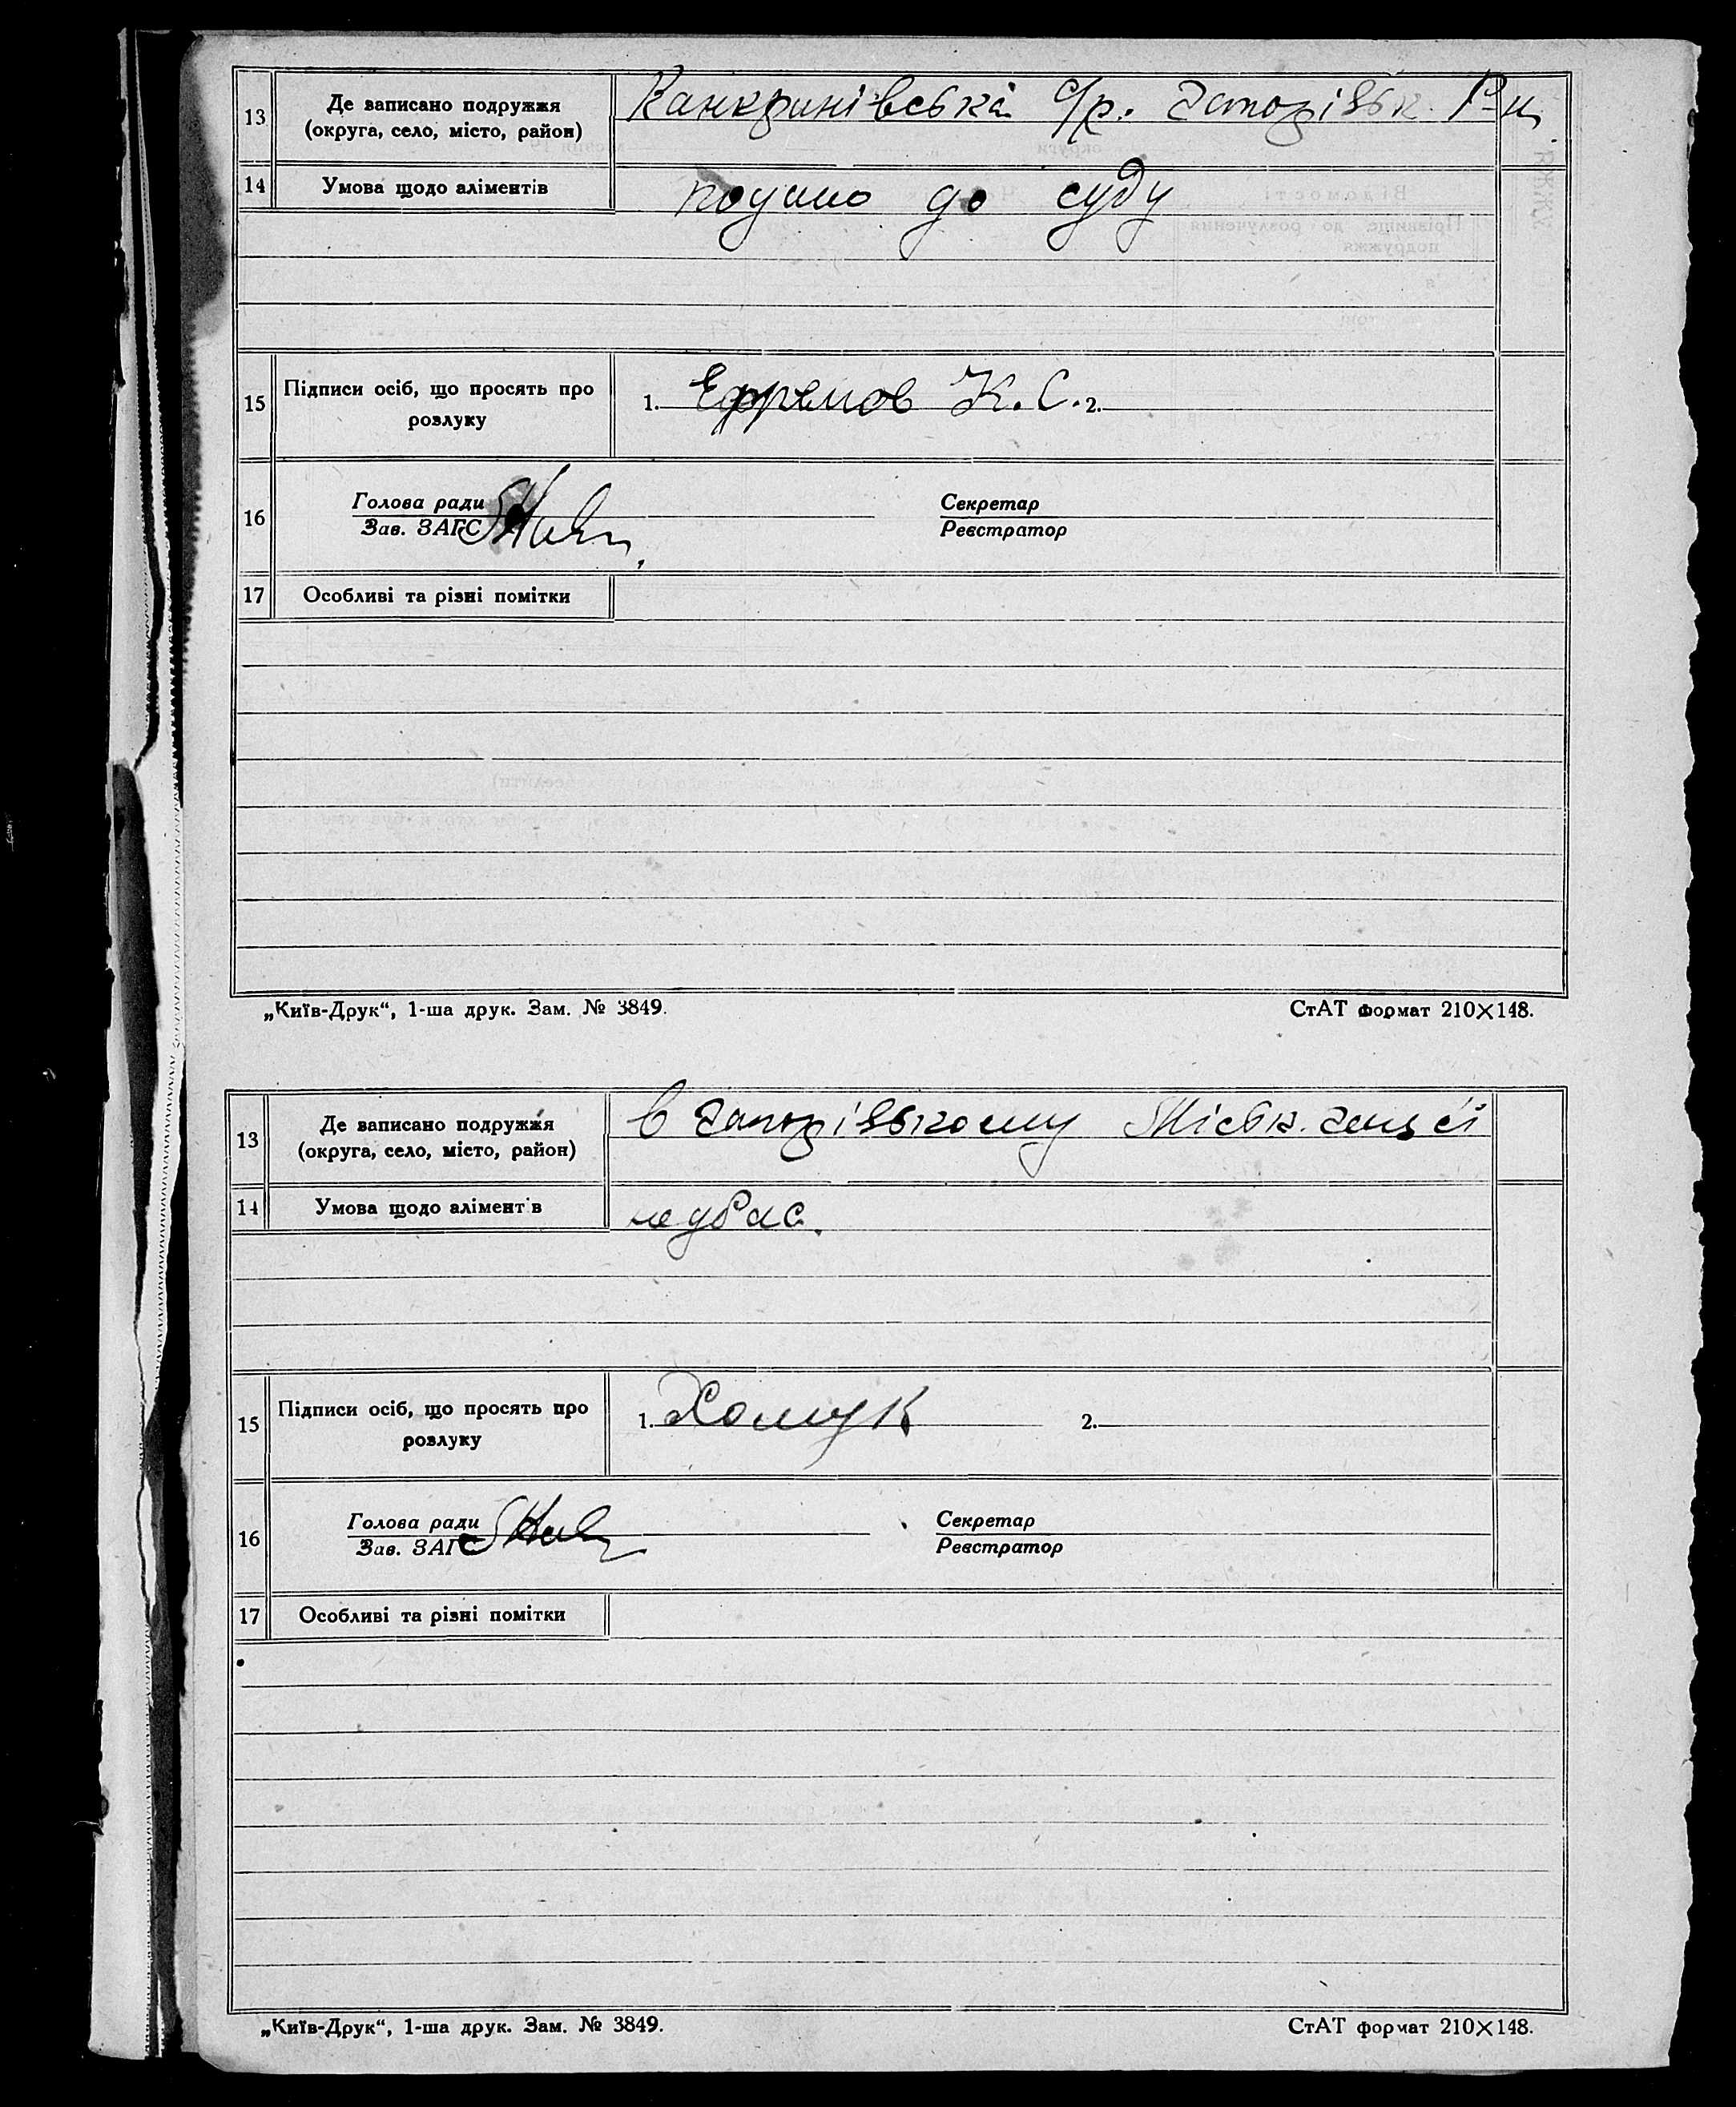 13 Де записано подружжя
(округа, село, місто, район)
Канкринівська с/р. Запорізьк. Р-н
14 Умова щодо аліментів
подано до суду
15 Підписи осіб, що просять про
розлуку
1. Ефремов К. С. 2.
16 Голова ради
Зав. ЗАГС
Секретар
Реєстратор
17 Особливі та різні помітки
„Київ-Друк“, 1-ша друк. Зам. № 3849.
СтАТ формат 210×148.
13 Де записано подружжя
(округа, село, місто, район)
в Запорізькому Міськ.
14 Умова щодо алімент в
15 Підписи осіб, що просять про
розлуку
1. Хомук 2.
16 Голова ради
Зав. ЗАГС
Секретар
Реєстратор
17 Особливі та різні помітки
„Київ-Друк“, 1-ша друк. Зам. № 3849.
СтАТ формат 210×148.